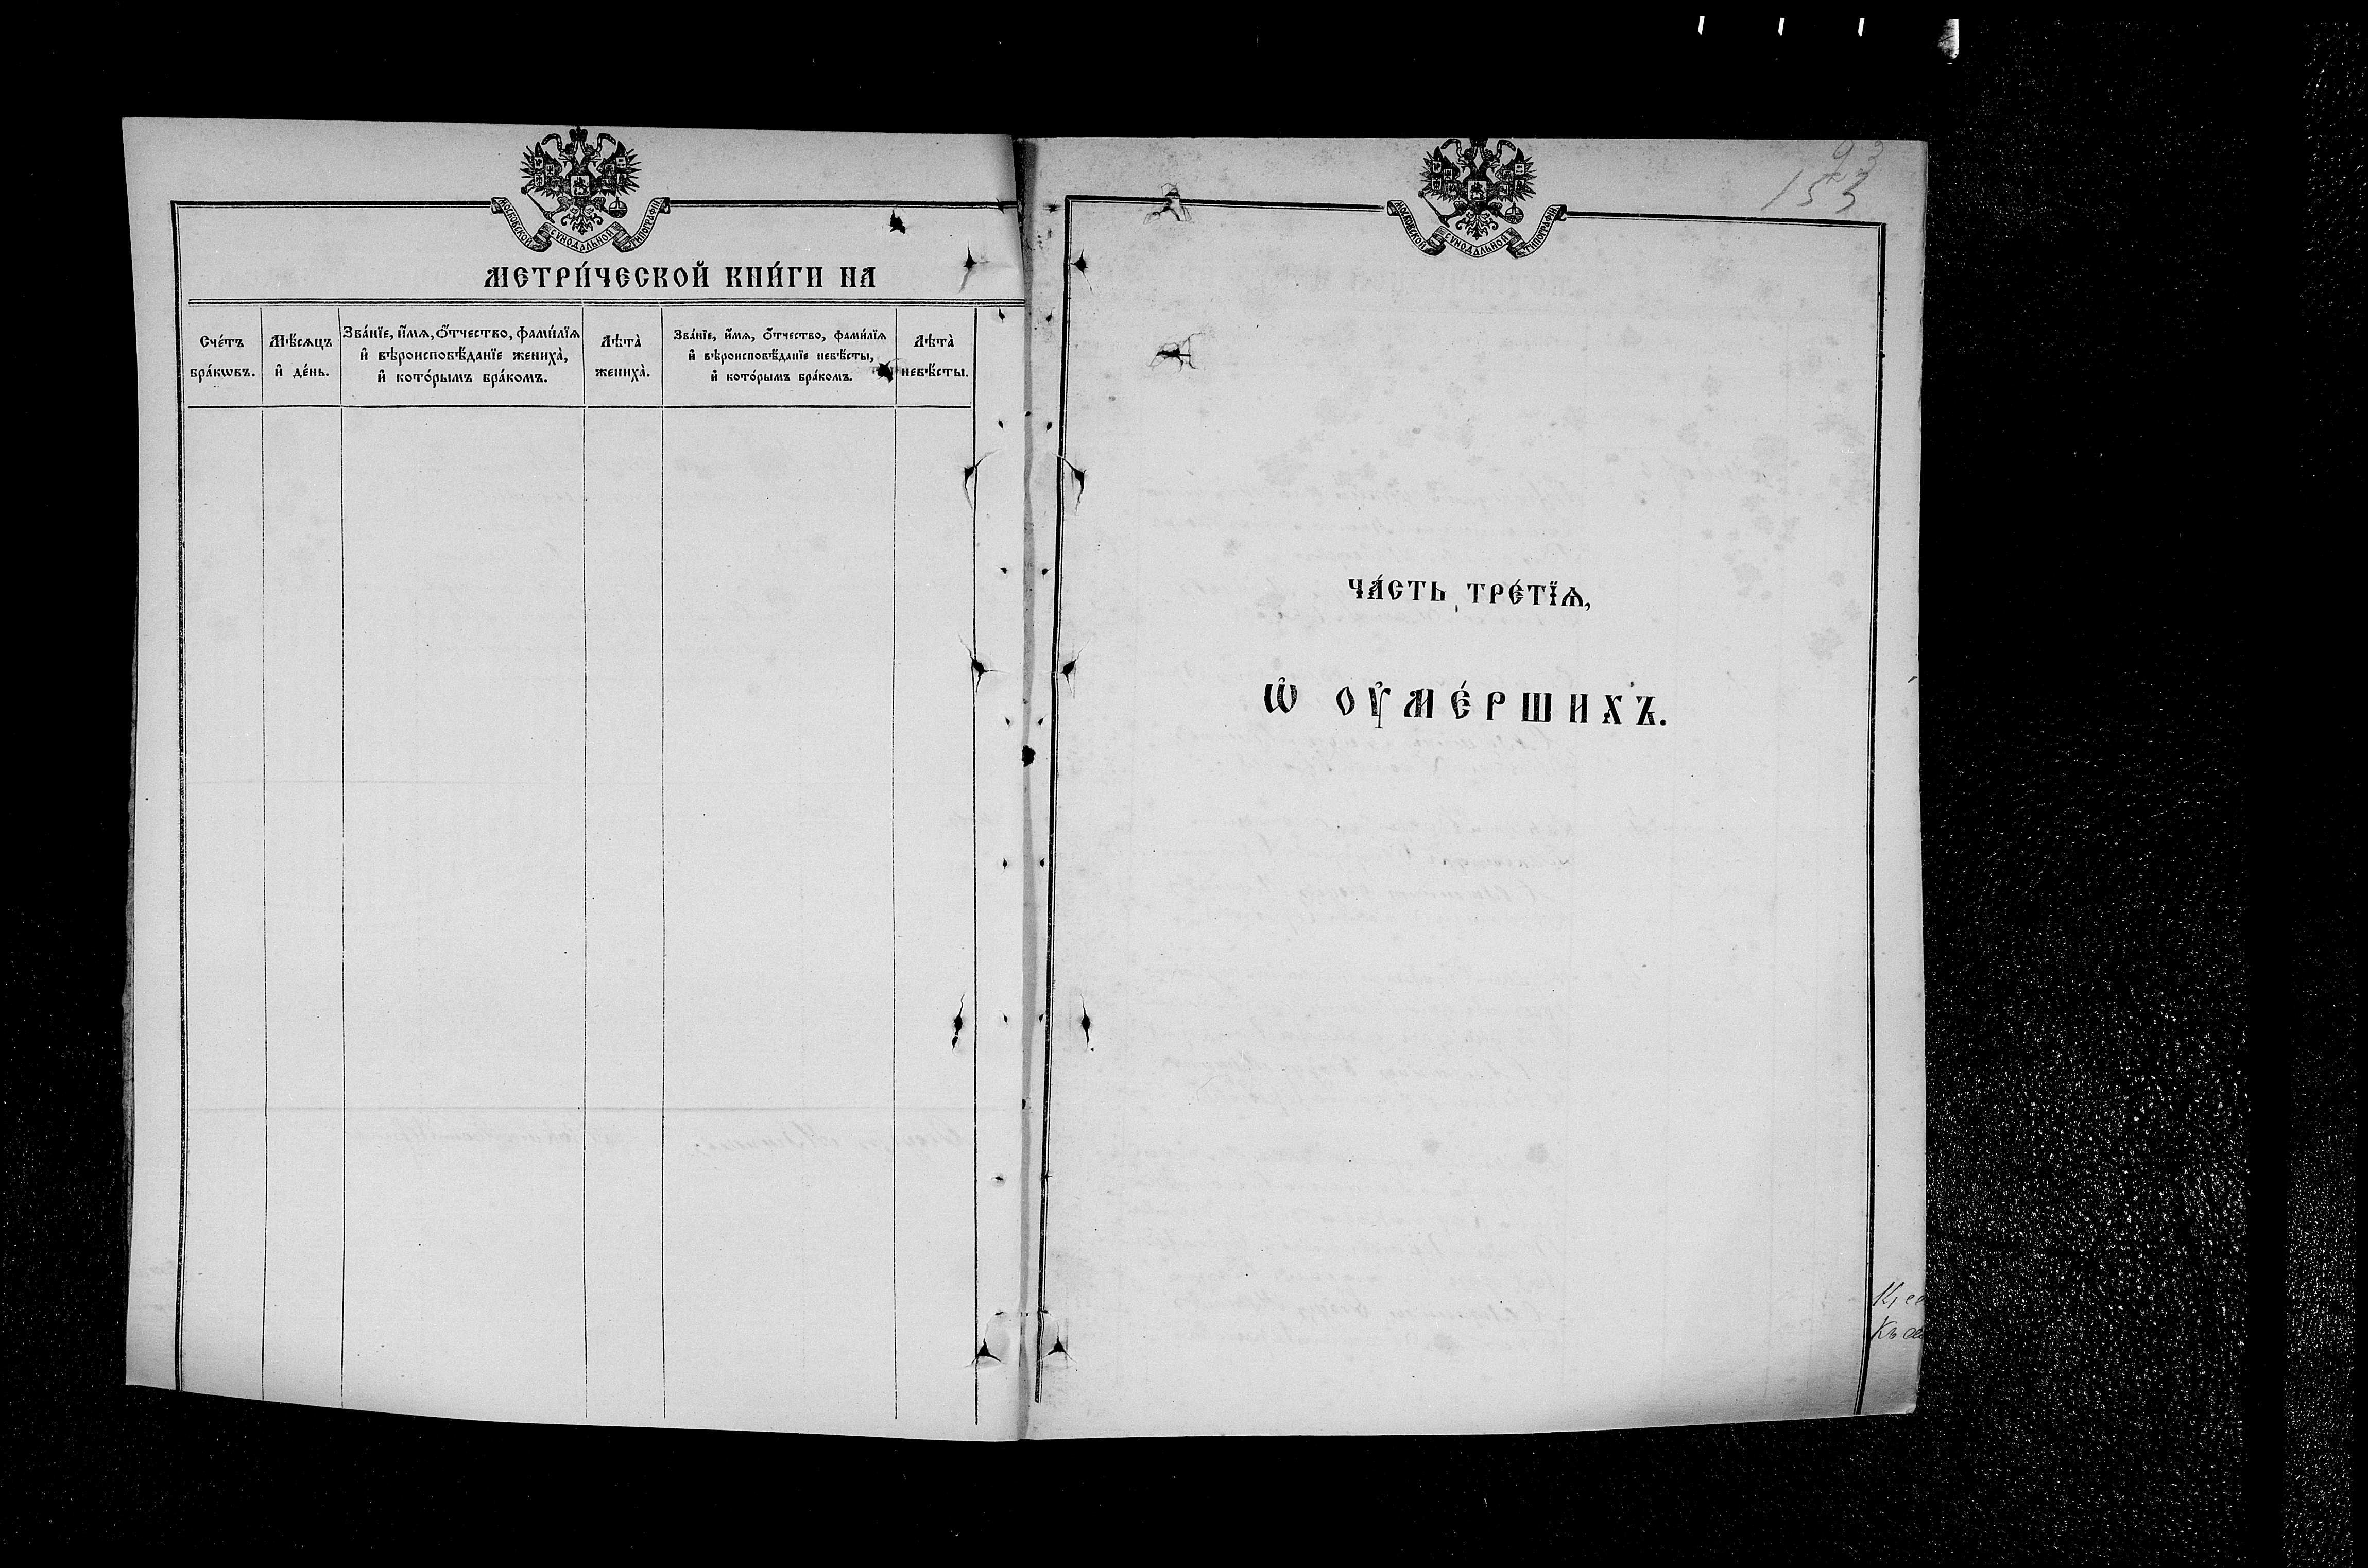 МОСКОВСКОЙ СѴНОДАЛЬНОЙ ТИПОГРАФІИ
МЕТРИ́ЧЕСКОЙ КНИ́ГИ НА
Сче́тъ бра́кѡвъ.
Мѣ́сѧцъ и҆ де́нь.
Зва́нїе, и҆́мѧ, ѻ҆́тчество, фами́лїѧ
и҆ вѣроисповѣ́данїе жениха̀,
и҆ кото́рымъ бра́комъ.
Лѣта̀ жениха̀.
Зва́нїе, и҆́мѧ, ѻ҆́тчество, фами́лїѧ
и҆ вѣроисповѣ́данїе невѣ́сты,
и҆ кото́рымъ бра́комъ.
Лѣта̀ невѣ́сты.
93
153
МОСКОВСКОЙ СѴНОДАЛЬНОЙ ТИПОГРАФІИ
ЧА́СТЬ ТРЕ́ТЇѦ,
Ѡ҆ ОУ҆МЕ́РШИХЪ.